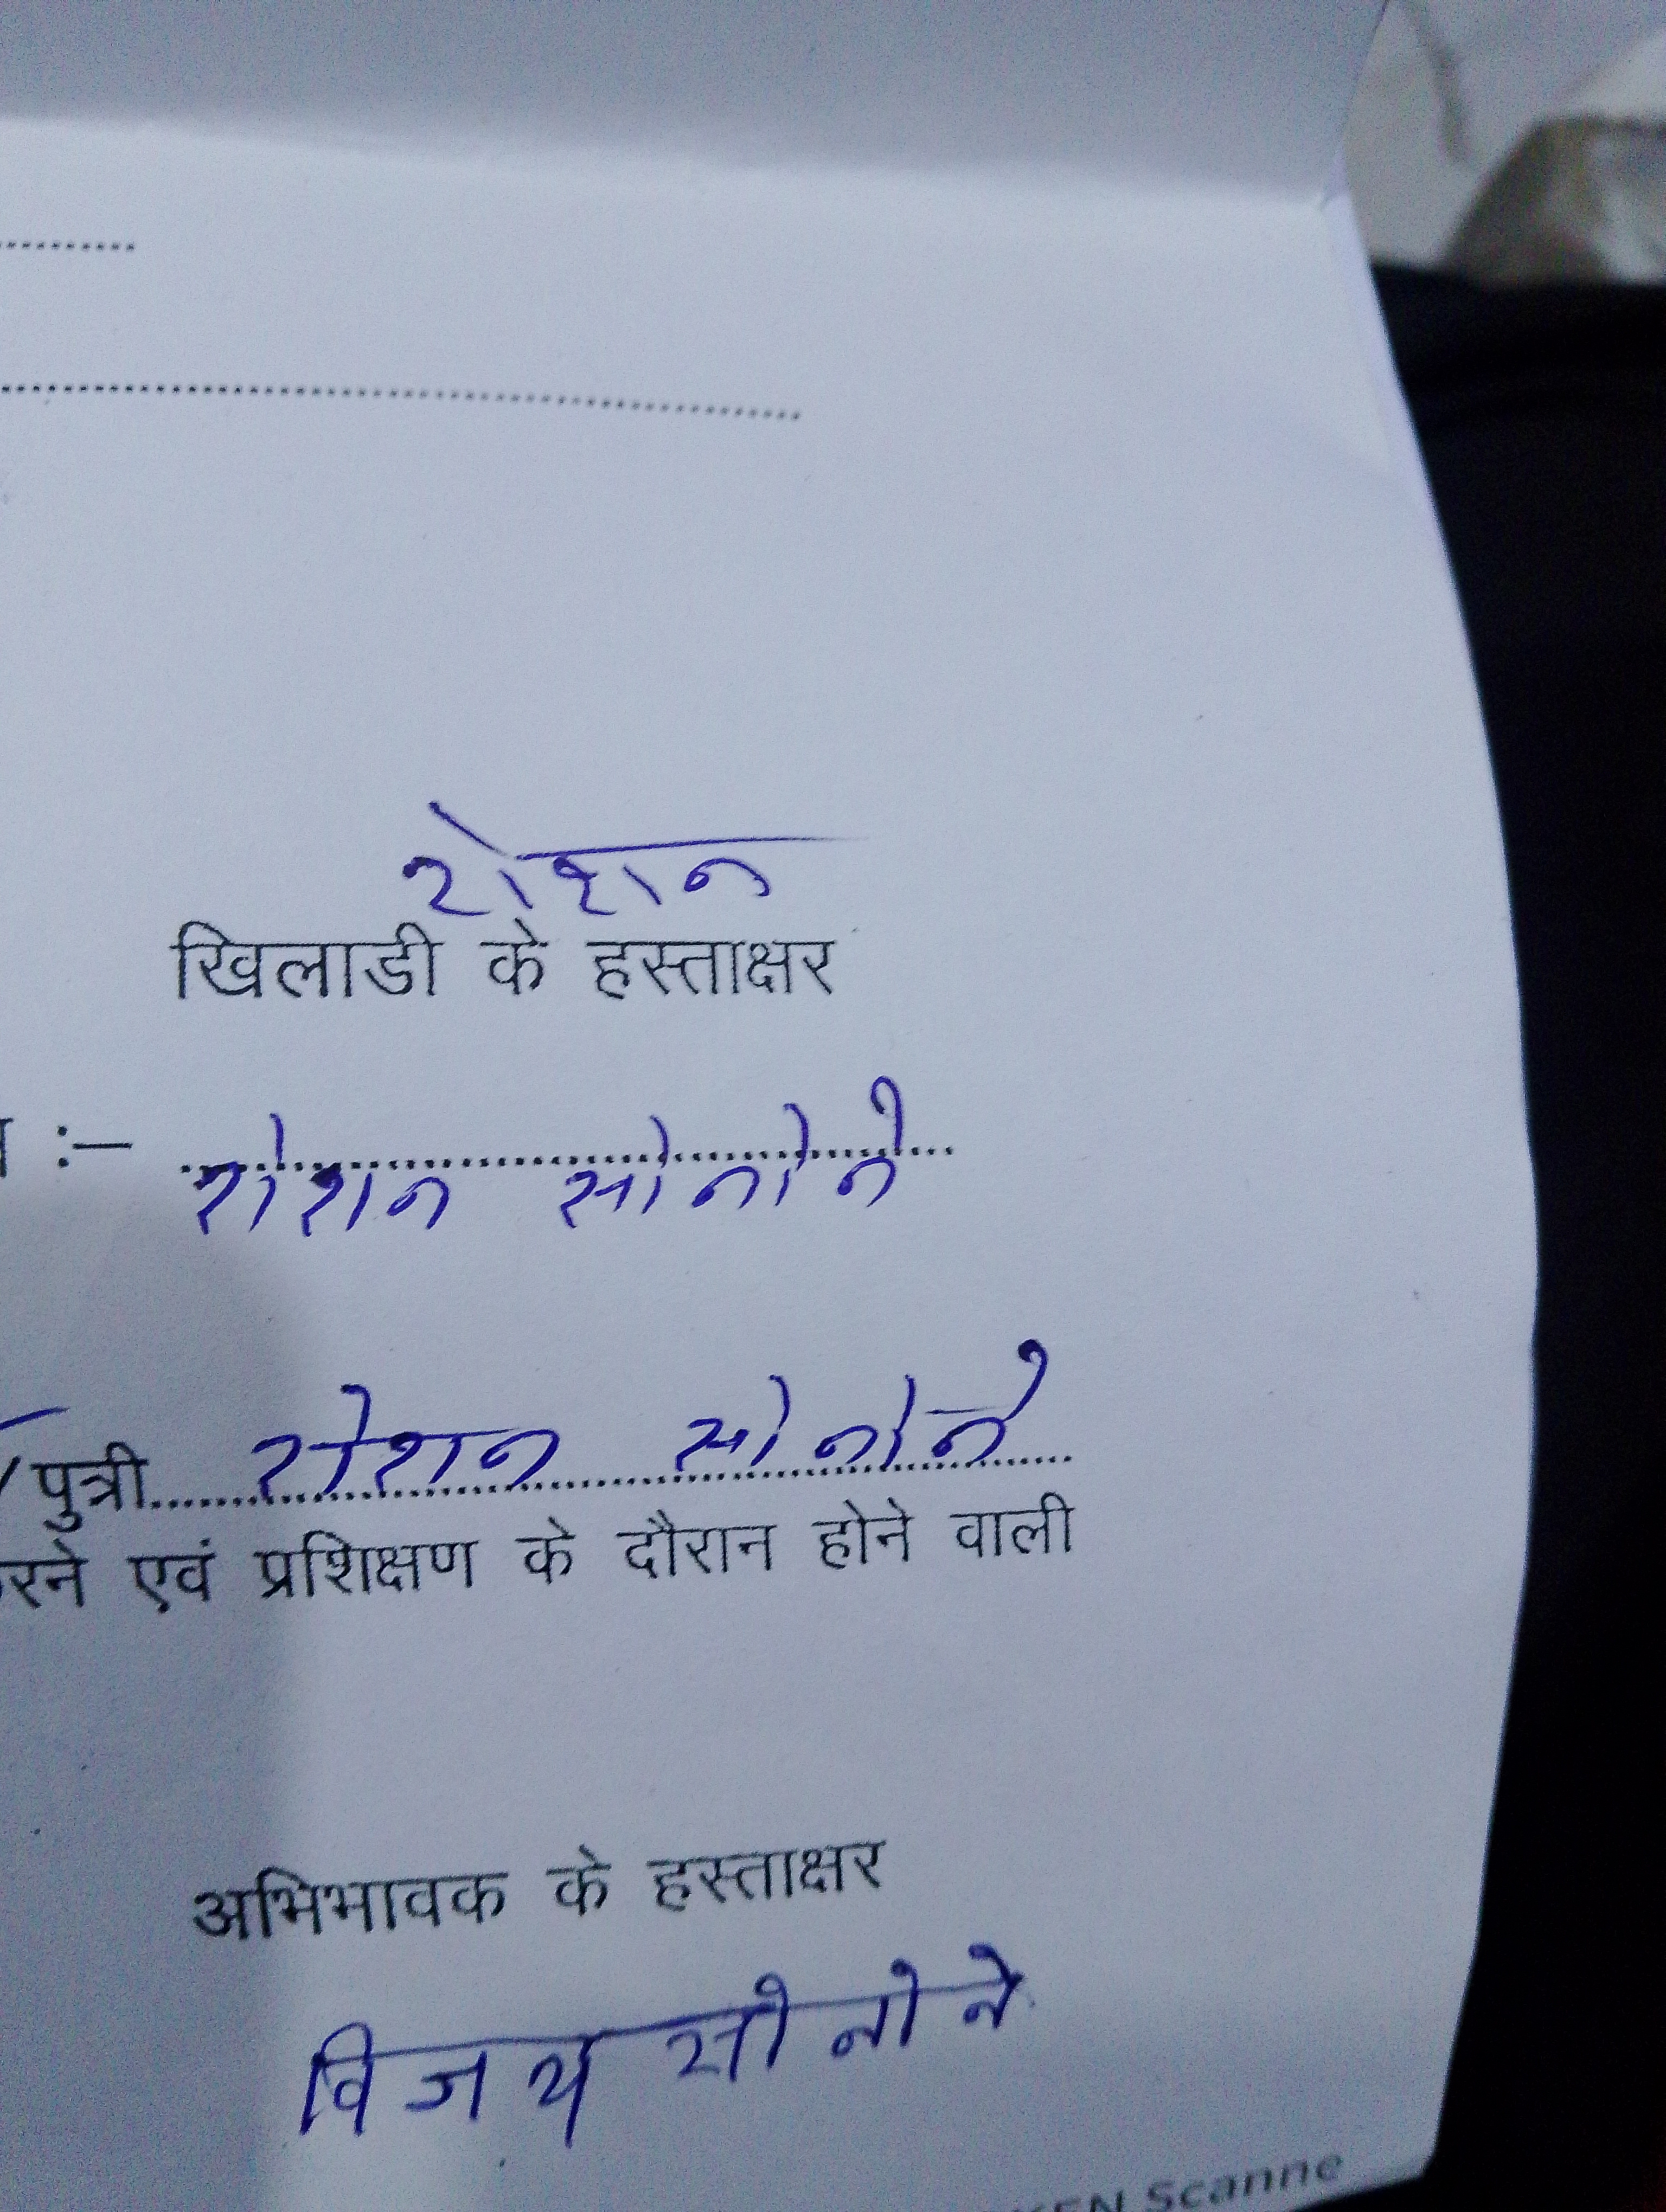 रोशन
खिलाडी के हस्ताक्षर
:— रोशन सोनोने
/पुत्री रोशन सोनोने
रने एवं प्रशिक्षण के दौरान होने वाली
अभिभावक के हस्ताक्षर
विजय सोनोने
KEN Scanne